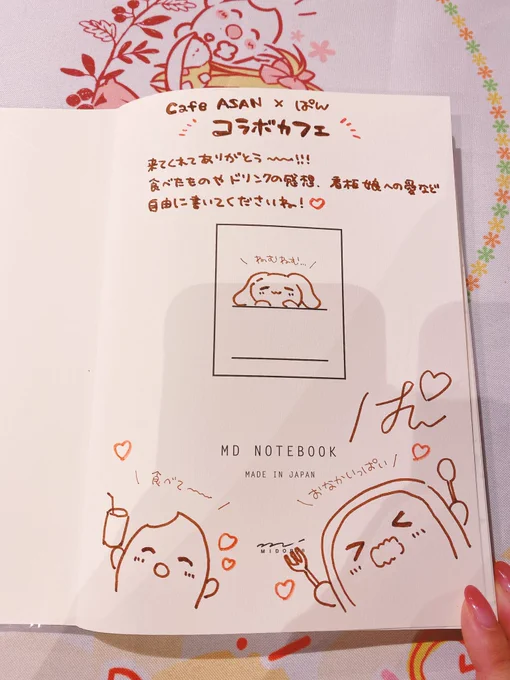 Cafe ASAN × ぱん
コラボカフェ
来てくれてありがとう〜〜!!!
食べたものやドリンクの感想、看板娘への愛など
自由に書いてくださいね！♡
ねむねむ…
ぱん♡
MD NOTEBOOK
MADE IN JAPAN
食べて〜〜
おなかいっぱい
MIDORI